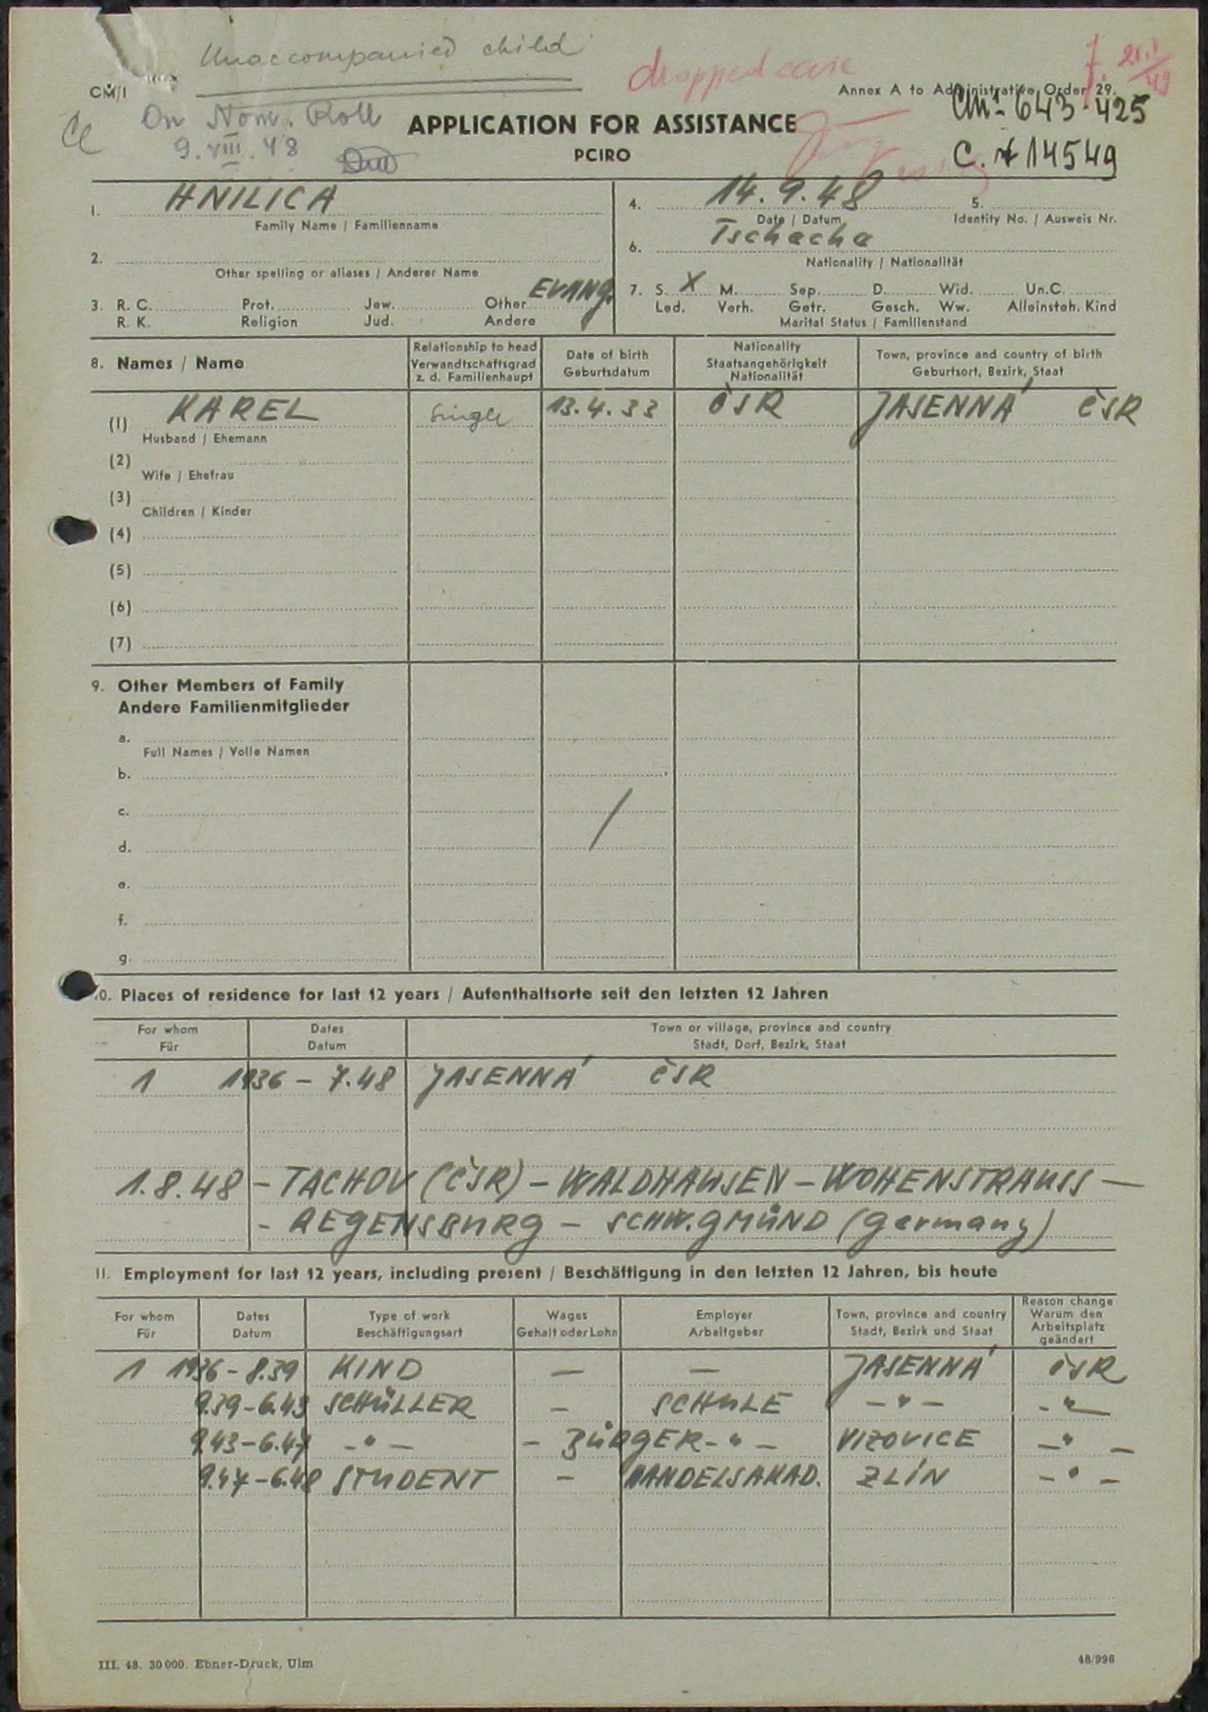 Unaccompanied child
dropped case
CM/1
Annex A to Administrative Order 29.
On Nom. Roll
9. VIII. 48
APPLICATION FOR ASSISTANCE
PCIRO
CM1- 643.425
C. 14549
1. HNILICA
Family Name / Familienname
4. 14.9.48
Date / Datum
5.
Identity No. / Ausweis Nr.
2.
Other spelling or aliases / Anderer Name
6. Tscheche
Nationality / Nationalität
3. R. C. Prot. Jew. Other EVANG.
R. K. Religion Jud. Andere
7. S. X M. Sep. D. Wid. Un.C.
Led. Verh. Getr. Gesch. Ww. Alleinsteh. Kind
Marital Status / Familienstand
8. Names / Name
Relationship to head
Verwandtschaftsgrad
z. d. Familienhaupt
Date of birth
Geburtsdatum
Nationality
Staatsangehörigkeit
Nationalität
Town, province and country of birth
Geburtsort, Bezirk, Staat
(1) KAREL single 13.4.33 ČSR JASENNÁ ČSR
Husband / Ehemann
(2)
Wife / Ehefrau
(3)
Children / Kinder
(4)
(5)
(6)
(7)
9. Other Members of Family
Andere Familienmitglieder
a.
Full Names / Volle Namen
b.
c.
d.
e.
f.
g.
10. Places of residence for last 12 years / Aufenthaltsorte seit den letzten 12 Jahren
For whom
Für
Dates
Datum
Town or village, province and country
Stadt, Dorf, Bezirk, Staat
1 1936 - 7.48 JASENNÁ ČSR
1.8.48 - TACHOV (ČSR) - WALDHAUSEN - WOHENSTRAUSS -
- REGENSBURG - SCHW. GMÜND (Germany)
11. Employment for last 12 years, including present / Beschäftigung in den letzten 12 Jahren, bis heute
For whom
Für
Dates
Datum
Type of work
Beschäftigungsart
Wages
Gehalt oder Lohn
Employer
Arbeitgeber
Town, province and country
Stadt, Bezirk und Staat
Reason change
Warum den
Arbeitsplatz
geändert
1 1936 - 8.39 KIND - - JASENNÁ ČSR
9.39 - 6.43 SCHÜLLER - SCHULE - " - - " -
9.43 - 6.47 - " - - BÜRGER - " - VIZOVICE - " -
9.47 - 6.48 STUDENT - HANDELSAKAD. ZLÍN - " -
III. 48. 30000. Ebner-Druck, Ulm
48/996